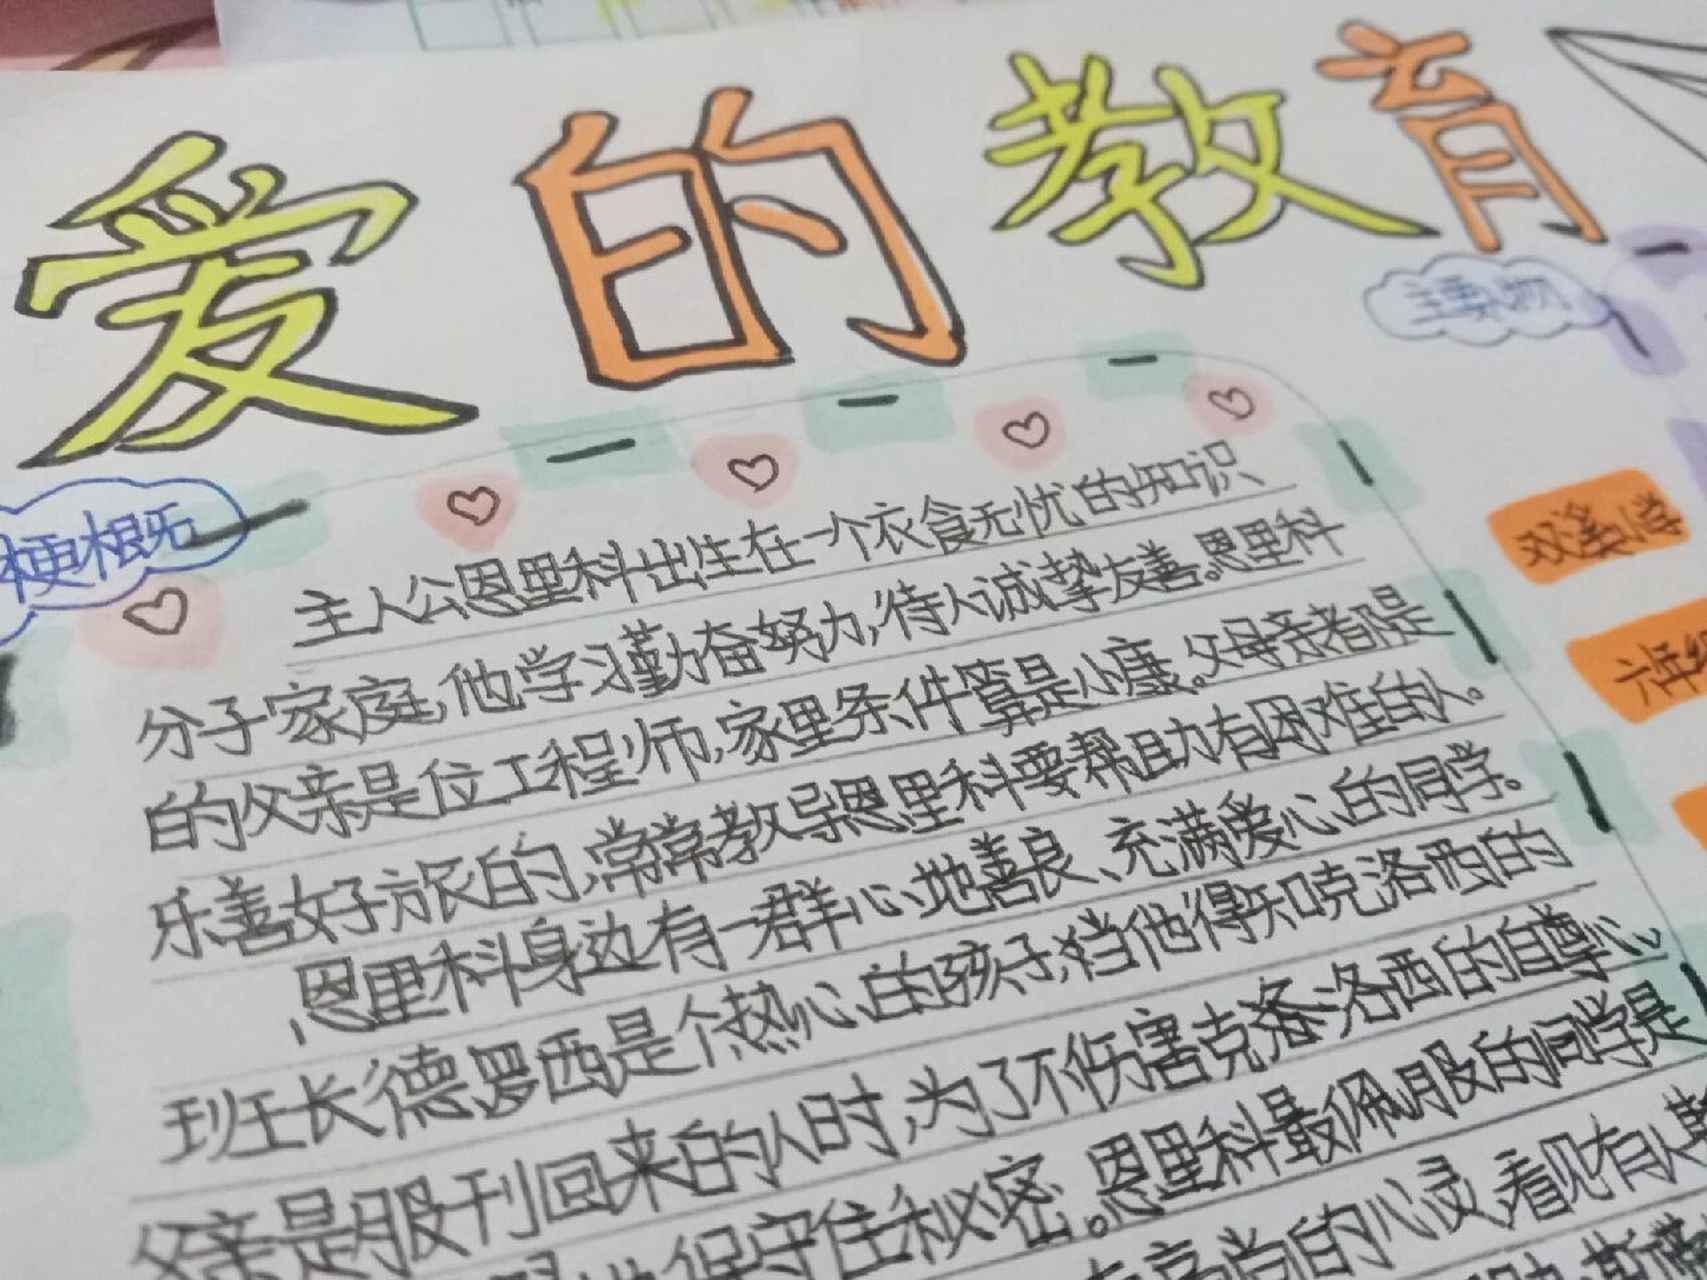 爱的教育
主要人物
梗概
双溪小学
六年级
主人公恩里科出生在一个衣食无忧的知识
分子家庭,他学习勤奋努力,待人诚挚友善。恩里科
的父亲是位工程师,家里条件算是小康。父母亲都是
乐善好施的,常常教导恩里科要帮助有困难的人。
恩里科身边有一群心地善良、充满爱心的同学。
班长德罗西是个热心的孩子,当他得知克洛西的
父亲是服刑回来的人时,为了不伤害克洛洛西的自尊心
保守住秘密。恩里科最佩服的同学是
高尚的心灵,看见有人